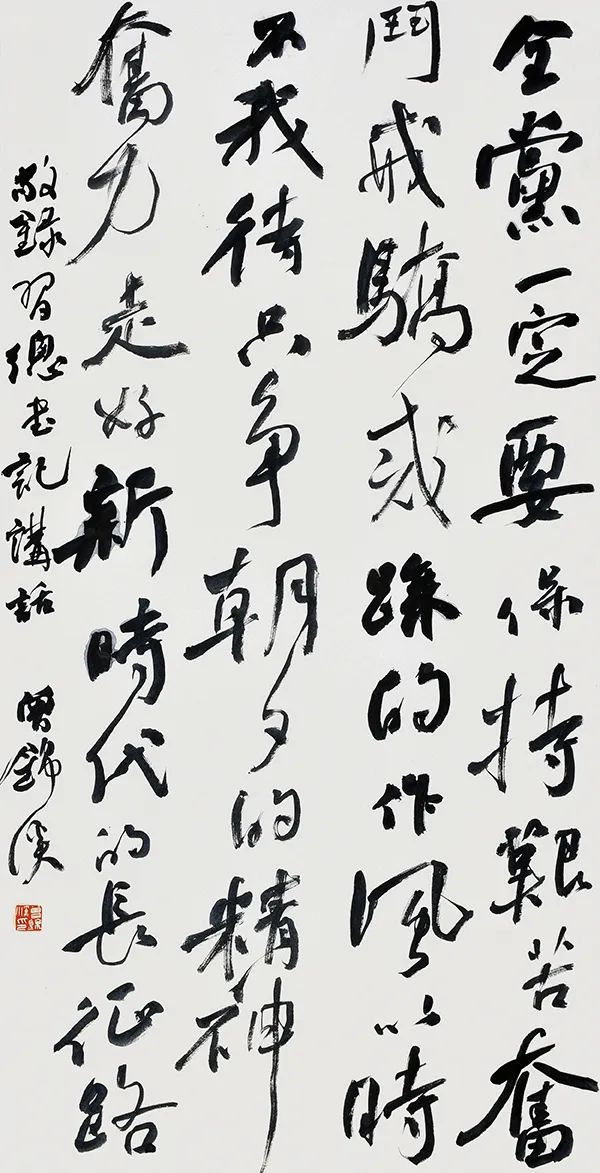 全黨一定要保持艱苦奮
鬥戒驕戒躁的作風以時
不我待只争朝夕的精神
奮力走好新時代的長征路
敬録習總書記講話 曾錦溪